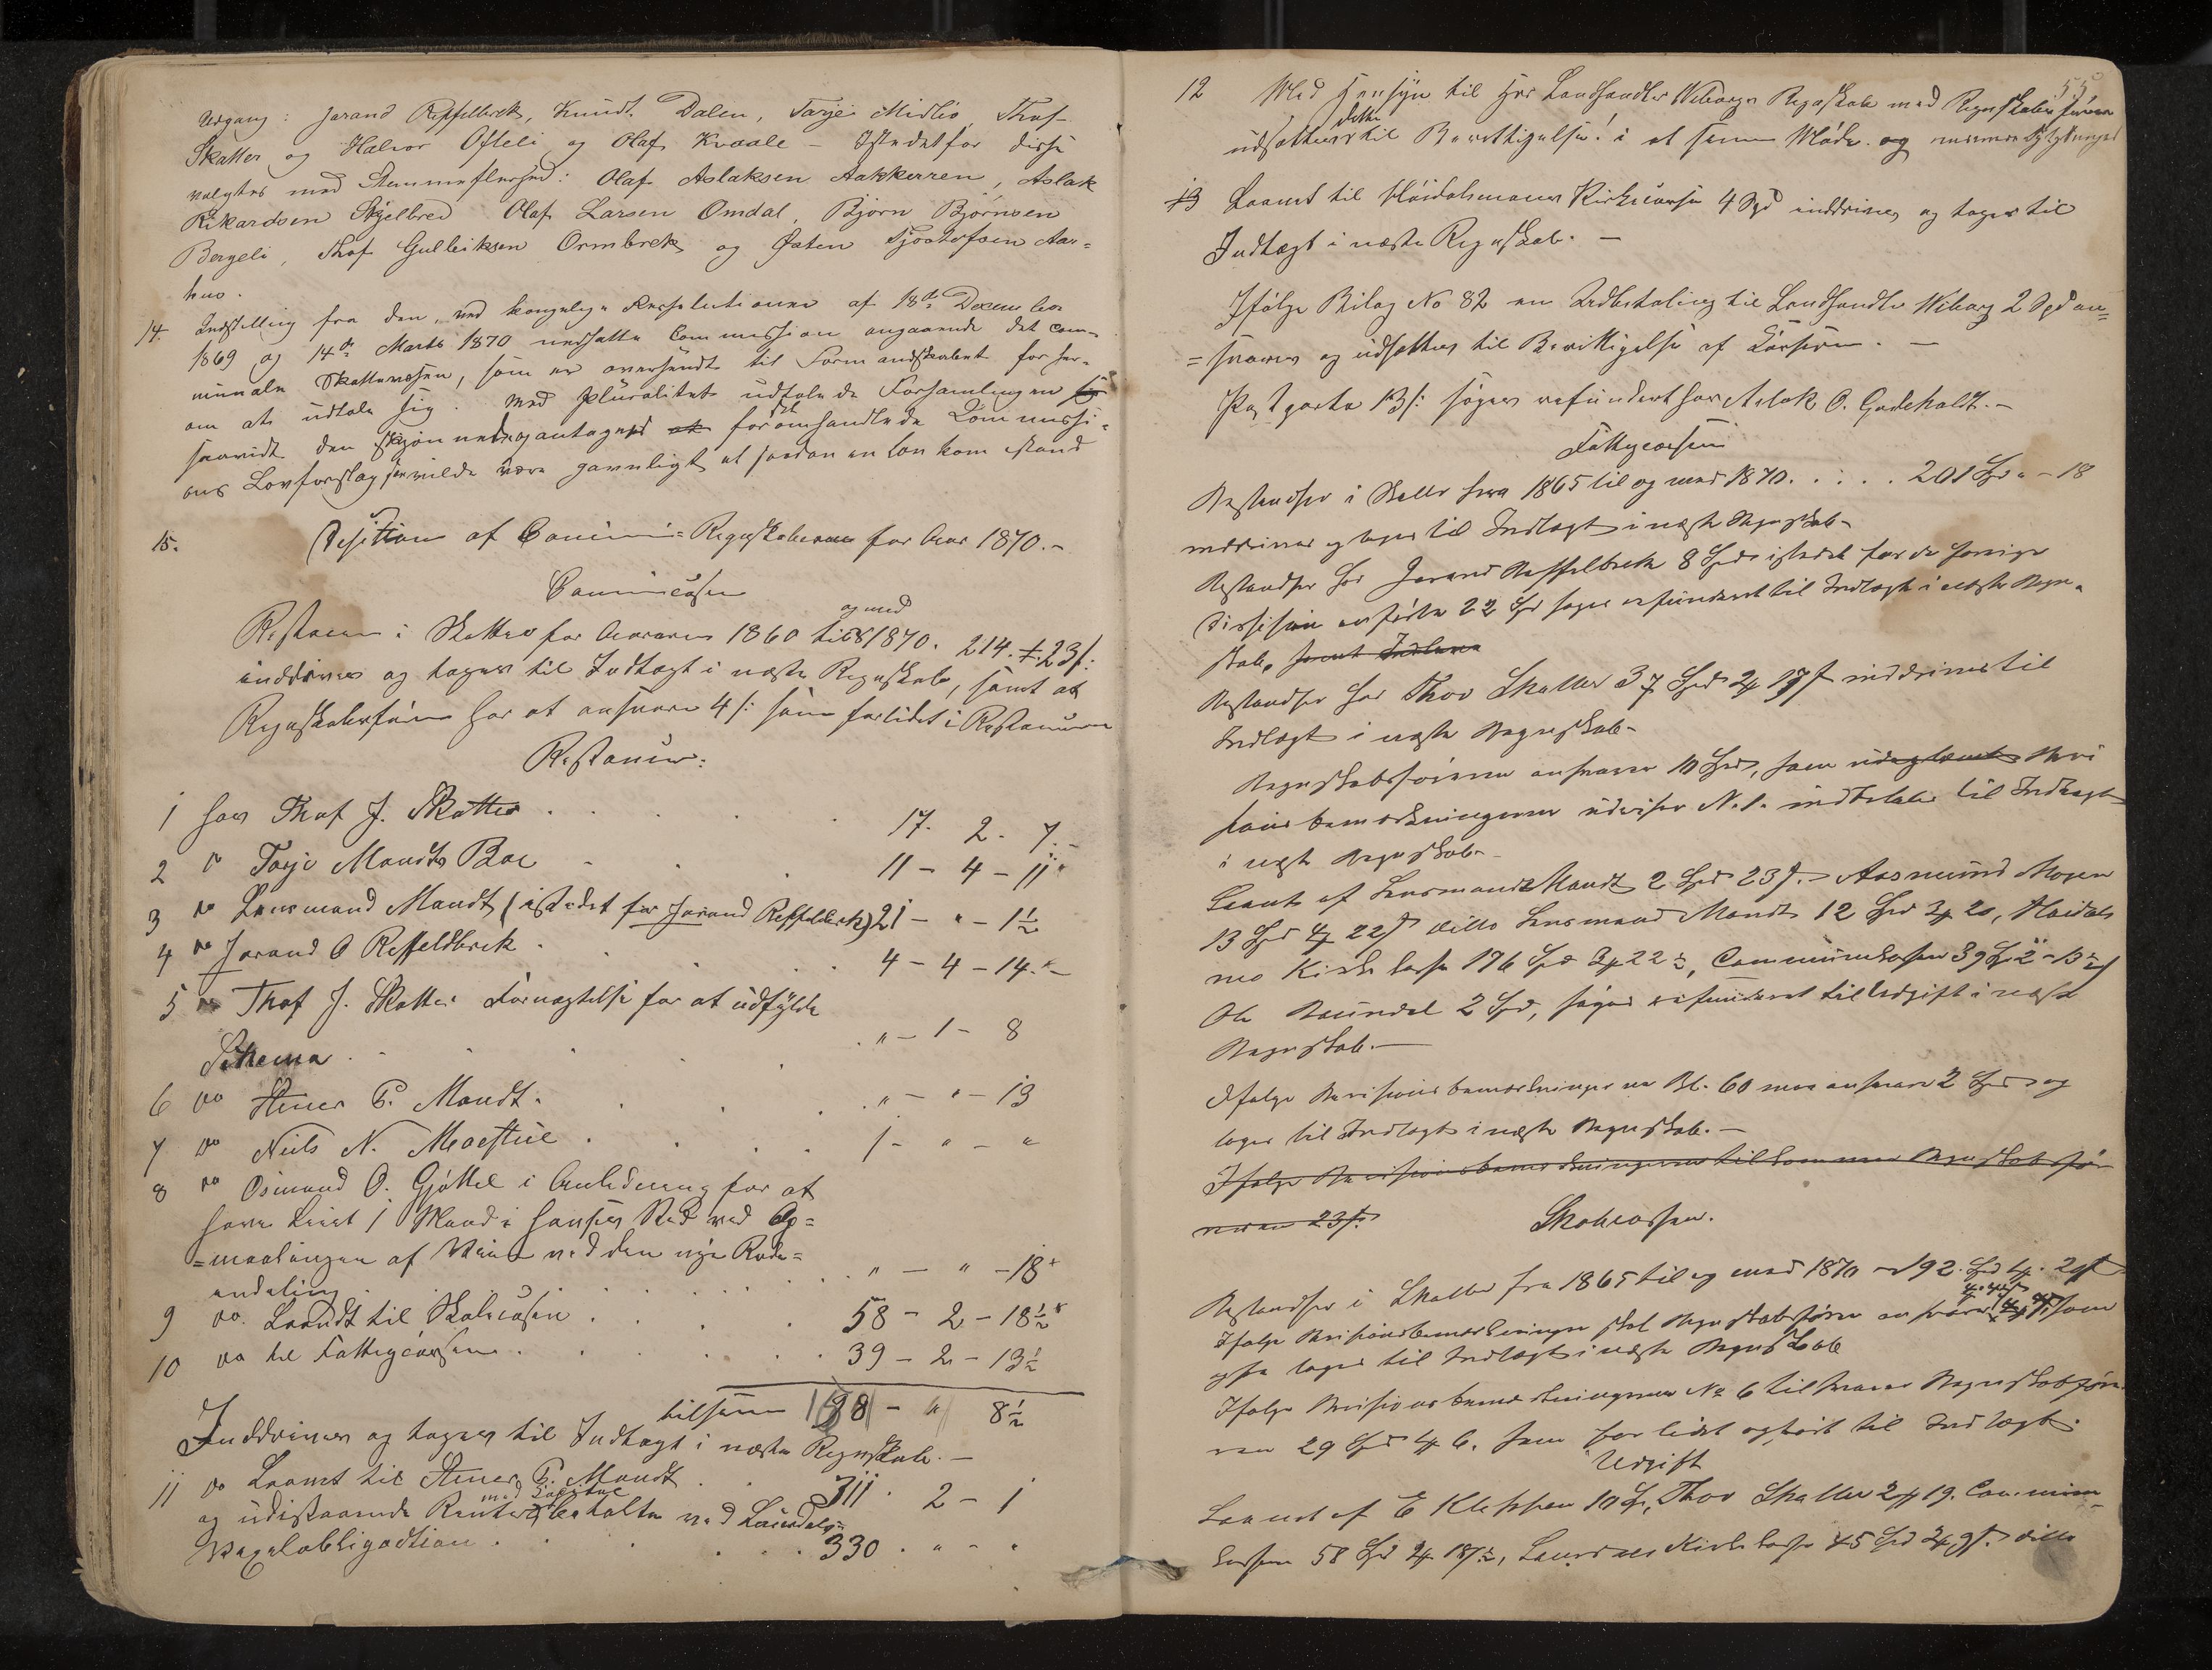 Udgang: Jarand Refselbrek, Knudt Dalen, Tarje Midbø, Thof
Skatter og Halvor Ofteli og Olaf Kvaale – Istedetfor disse
valgtes med Stemmeflerhed: Olaf Aslaksen Aakkerren, Aslak
Rikardsen Skjelbred Olaf Larsen Omdal, Bjørn Bjørnsen
Bergeli, Thof Gulleiksen Ormbrek og Østen Tjostofsen Aar=
hus.
14. Indstilling fra den, ved kongelige Resolutioner af 18de Decembr
1869 og 14de Marts 1870 nedsatte Commission angaaende det com-
munale Skattevæsen, som er oversendt til Formandskabet for her-
om at udtale sig. Med Pluralitet udtalede Forsamlingen
saavidt den skjønnede og antaged at for det omhandlede Commissi-
ons Lovforslag vilde være gavnligt at saadan en Lov kom istand
15. Desition af Commune=Regnskaberne for Aar 1870.–
Communecasen
Restancer i Skatter for Aarene 1860 til og med 1870. 214. 4. 23 s:
inddrives og tages til Indtægt i næste Regnskab, samt at
Regnskabsføreren har at ansvare 4 s: som forlidet i Restancerne
Restancer:
1 hos Thof J. Skatter . . . 17. 2. 7.–
2 do Tarje Mandts Boe – . . 11 – 4 – 11
3 do Lensmand Mandt (istedet for Jarand Refseldbrek) 21 – " – 1½
4 do Jarand O Refseldbrek . . . 4 – 4 – 14.–
5 do Thof J. Skatter Fornægtelse for at udfylde
Schema . . . . " – 1 – 8
6 do Stener P. Mandt . . . " – " – 13
7 do Niels N. Moestue . . . 1 – " – "
8 do Osmund O. Gjøttil i Anledning for at
have leiet 1 Mand i hans Sted ved Op=
=maalingen af Veien ved den nye Rode=
indeling . . . " – " – 18
9 do. Laandt til Skolecasen . . . 58 – 2 – 18½
10 do til Fattigcassen . . . 39 – 2 – 13½
tilsam 198 – " 8½
Inddrives og tages til Indtægt i næste Regnskab. –
11 do Laant til Stener P. Mandt . 311. 2 – 1
og udistaaende Renter med Capital betalte ved Laurdals
Vexelobligadtion . . . 330 . " – "
12 Med Hensyn til Hr Landhandler Wiborgs Regnskab med Regnskabsføreren
udsættes dette til Berettigelse i et senere Møde. og
13 Laant til Høidalsmoens Kirkecasse 4 Spd inddrives og tages til
Indtægt i næste Regnskab. –
Ifølge Bilag No 82 en Udbetaling til Landhandler Wiborg 2 Spd an=
=svares og udsættes til Berettigelse af Cassen. –
Postporto 13 s: søges refunderet hos Aslak O. Gardehaldt. –
Fattigcassen
Restandser i Skatter fra 1865 til og med 1870. . . . . 201 Spd " – 18
inddrives og tages til Indtægt i næste Regnskab–
Restandser hos Jarand Refselbrek 8 Spd istedet for de forrige
Dissision anførte 22 Spd søges refunderet til Indtægt i næste Regn-
skab, samt Indlaan
Restandser hos Thov Skatter 37 Spd 2 17 s inddrives til
Indtægt i næste Regnskab–
Regnskabsføreren ansvarer 10 Spd, som Revi
sionsbemærkningerne udviser No 1. indbetales til Indtægt
i næst Regnskab–
Laant af Lensmand Mandt 2 Spd 23 s. Aasmund Mogen
13 Spd 4 22 s ditto Lensmand Mandt 12 Spd 3 20, Høidals
mo Kirke Casse 176 Spd 3 22½, Communekassen 39 Spd 2 – 13½
Ole Bøundal 2 Spd, søges refunderet til Udgift i næst
Regnskab. –
Ifølge Revisionsbemærkninger Bl. 60 maa ansvare 2 Spd og
tages til Indtægt i næste Regnskab. –
Ifølge Revisionsbemærkningerne tilkommer Regnskabsfø-
reren 23 s.
Skolecassen.
Restandser i Skatter fra 1865 til og med 1870 – 192. Spd 4. 20 s
Ifølge Revisionsbemærkninger skal Regnskabsføren ansvare som
ogsaa tages til Indtægt i næste Regnskab
Ifølge Revisionsbemærkningerne No 6 tilsvarer Regnskabsføre
ren 29 Spd 4 6. som for lidet opført til Indtægt.
Udgift
Laant af E Kleppen 10 Spd, Thov Skatter 2 19. Commun-
kassen 58 Spd 2 18½, Laurdals Kirke Casse 45 Spd 3 9 s. ditto